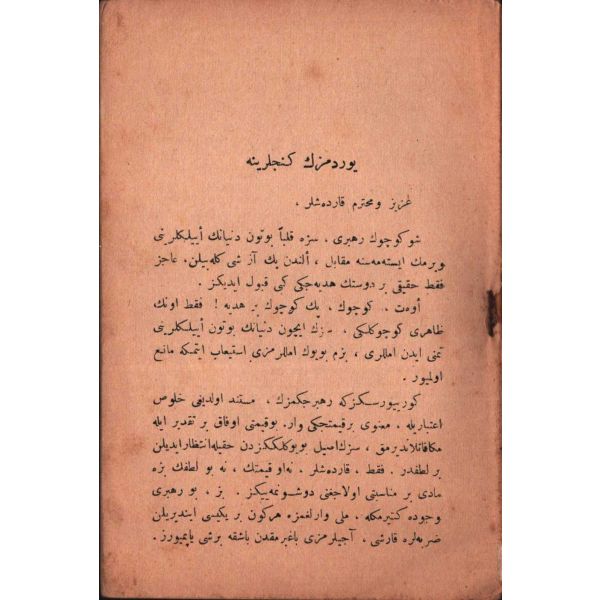 يوردمزك كنجلرينه
عزيز و محترم قارده‌شلر ،
شو كوچوك رهبرى ، سزه قلباً بوتون دنيانك أييلكلرينى
ويرمك ايسته‌مه‌سنه مقابل ، ألندن پك آز شى كله‌بيلن. عاجز
فقط حقيقى بر دوستك هديه‌جكى كبى قبول ايديكز .
أوه‌ت . كوچوك . پك كوچوك بر هديه ! فقط اونك
ظاهرى كوچوكلكى ، سزك ايچون دنيانك بوتون أييلكلرينى
تمنى ايدن امللرى ، بزم بويوك امللرمزى استيعاب ايتمكه مانع
اولميور .
كورييورسكزكه رهبرجكمزك ، مستند اولديغى خلوص
اعتباريله ، معنوى برقيمتجكى وار. بوقيمتى اوفاق بر تقدير ايله
مكافاتلانديرمق ، سزك‌اصيل بويوكلككزدن حقيله‌انتظارايديلن
بر لطفدر . فقط ، قارده‌شلر . نه‌او قيمتك ، نه بو لطفك بزه
مادى بر مناستى اولاجغنى دوشونمه‌ييكز . بز ، بو رهبرى
وجوده كتيرمكله ، ملى وارلغمزه هركون بر يكيسى اينديريلن
ضربه‌لره قارشى ، آجيلرمزى باغيرمقدن باشقه برشى ياپميورز .